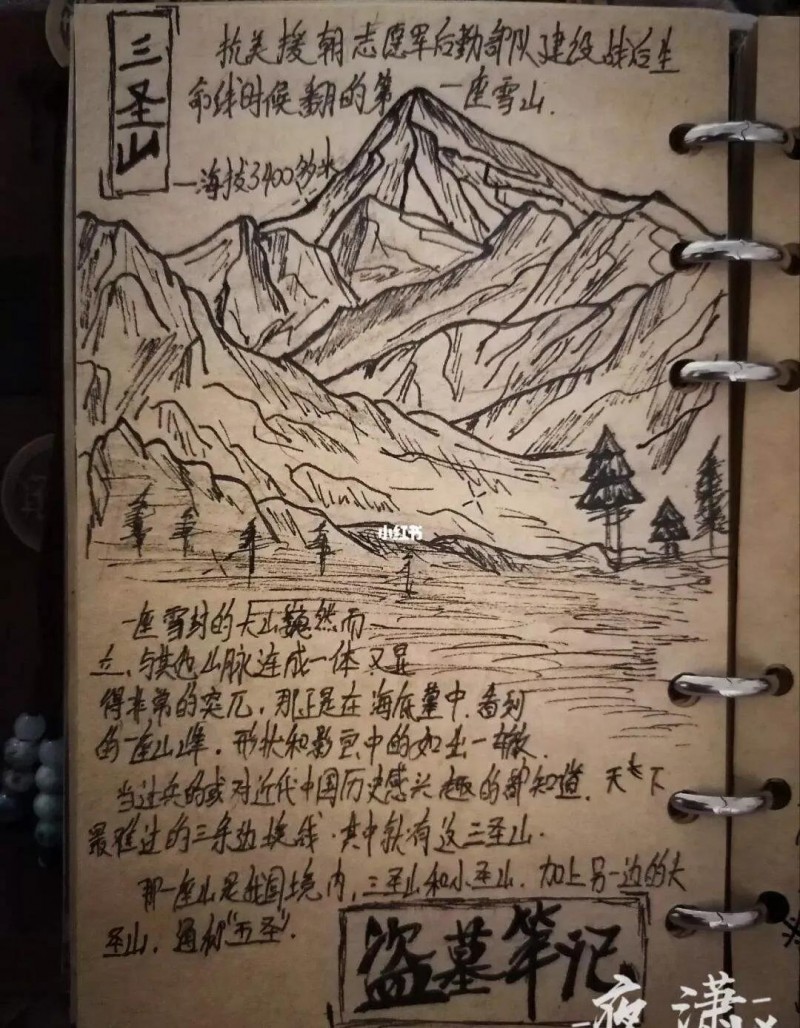 三圣山
抗美援朝志愿军后勤部队建设战后生
命线时候翻的第一座雪山.
—海拔3400多米
小红书
一座雪封的大山巍然而
立、与其他山脉连成一体又显
得非常的突兀，那正是在海底墓中看到
的一座山峰，形状和影画中的如出一辙.
当过兵的或对近代中国历史感兴趣的都知道，天下
最难过的三条边境线.其中就有这三圣山.
那一座山是我国境内，三圣山和小圣山，加上另一边的大
圣山，通称"五圣".
盗墓笔记
夜潇